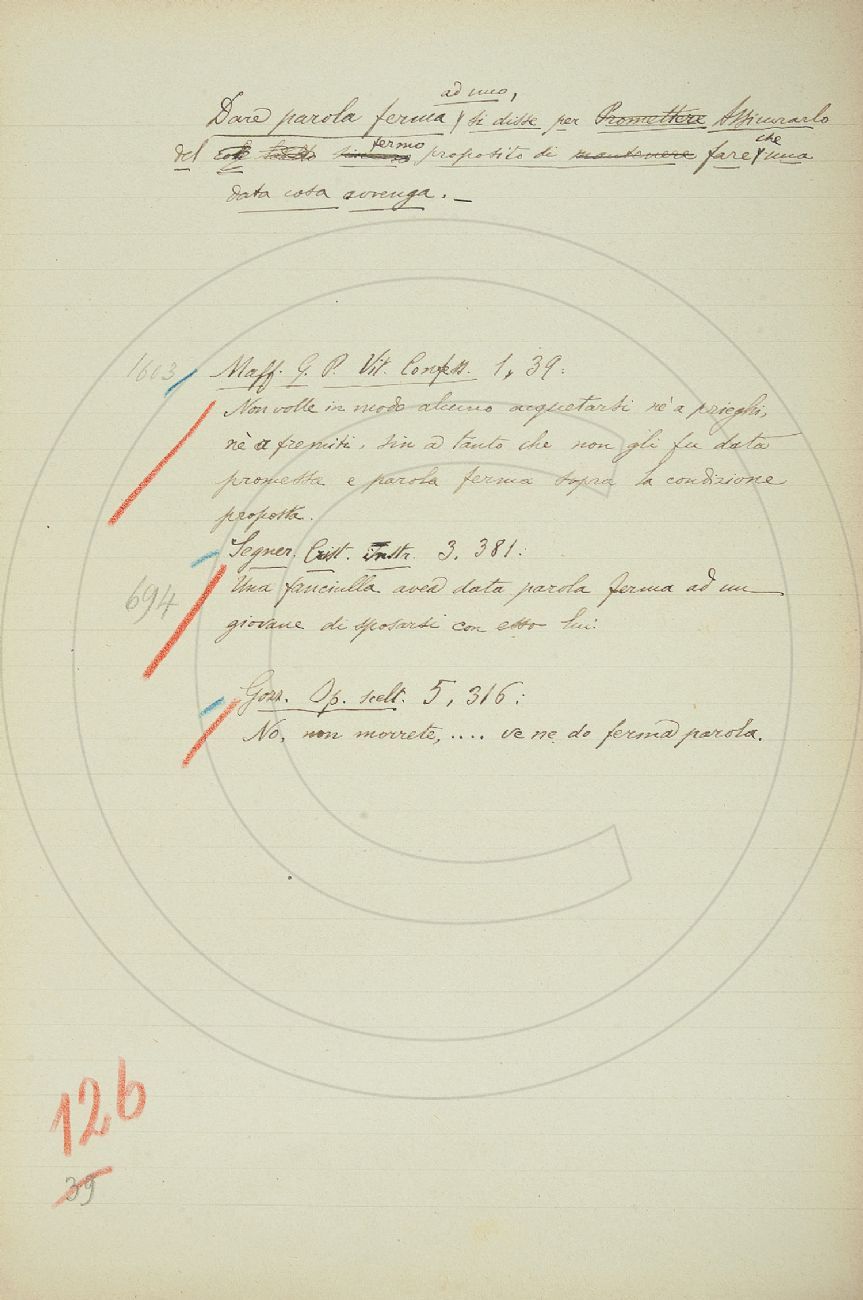 ad uno,
Dare parola ferma si disse per Promettere Assicurarlo
fermo che
del proposito di mantenere fare una
data cosa avvenga. _
1603 Maff. G. P. Vit. Confess. 1, 39:
Non volle in modo alcuno acquetarsi nè a prieghi,
nè a fremiti, sin a tanto che non gli fu data
promessa e parola ferma sopra la condizione
proposta.
Segner. Crist. Instr. 3. 381:
694 Una fanciulla avea data parola ferma ad un
giovane di sposarsi con esso lui:
Gozz. Op. scelt. 5, 316:
No, non morrete, .... ve ne do ferma parola.
126
39